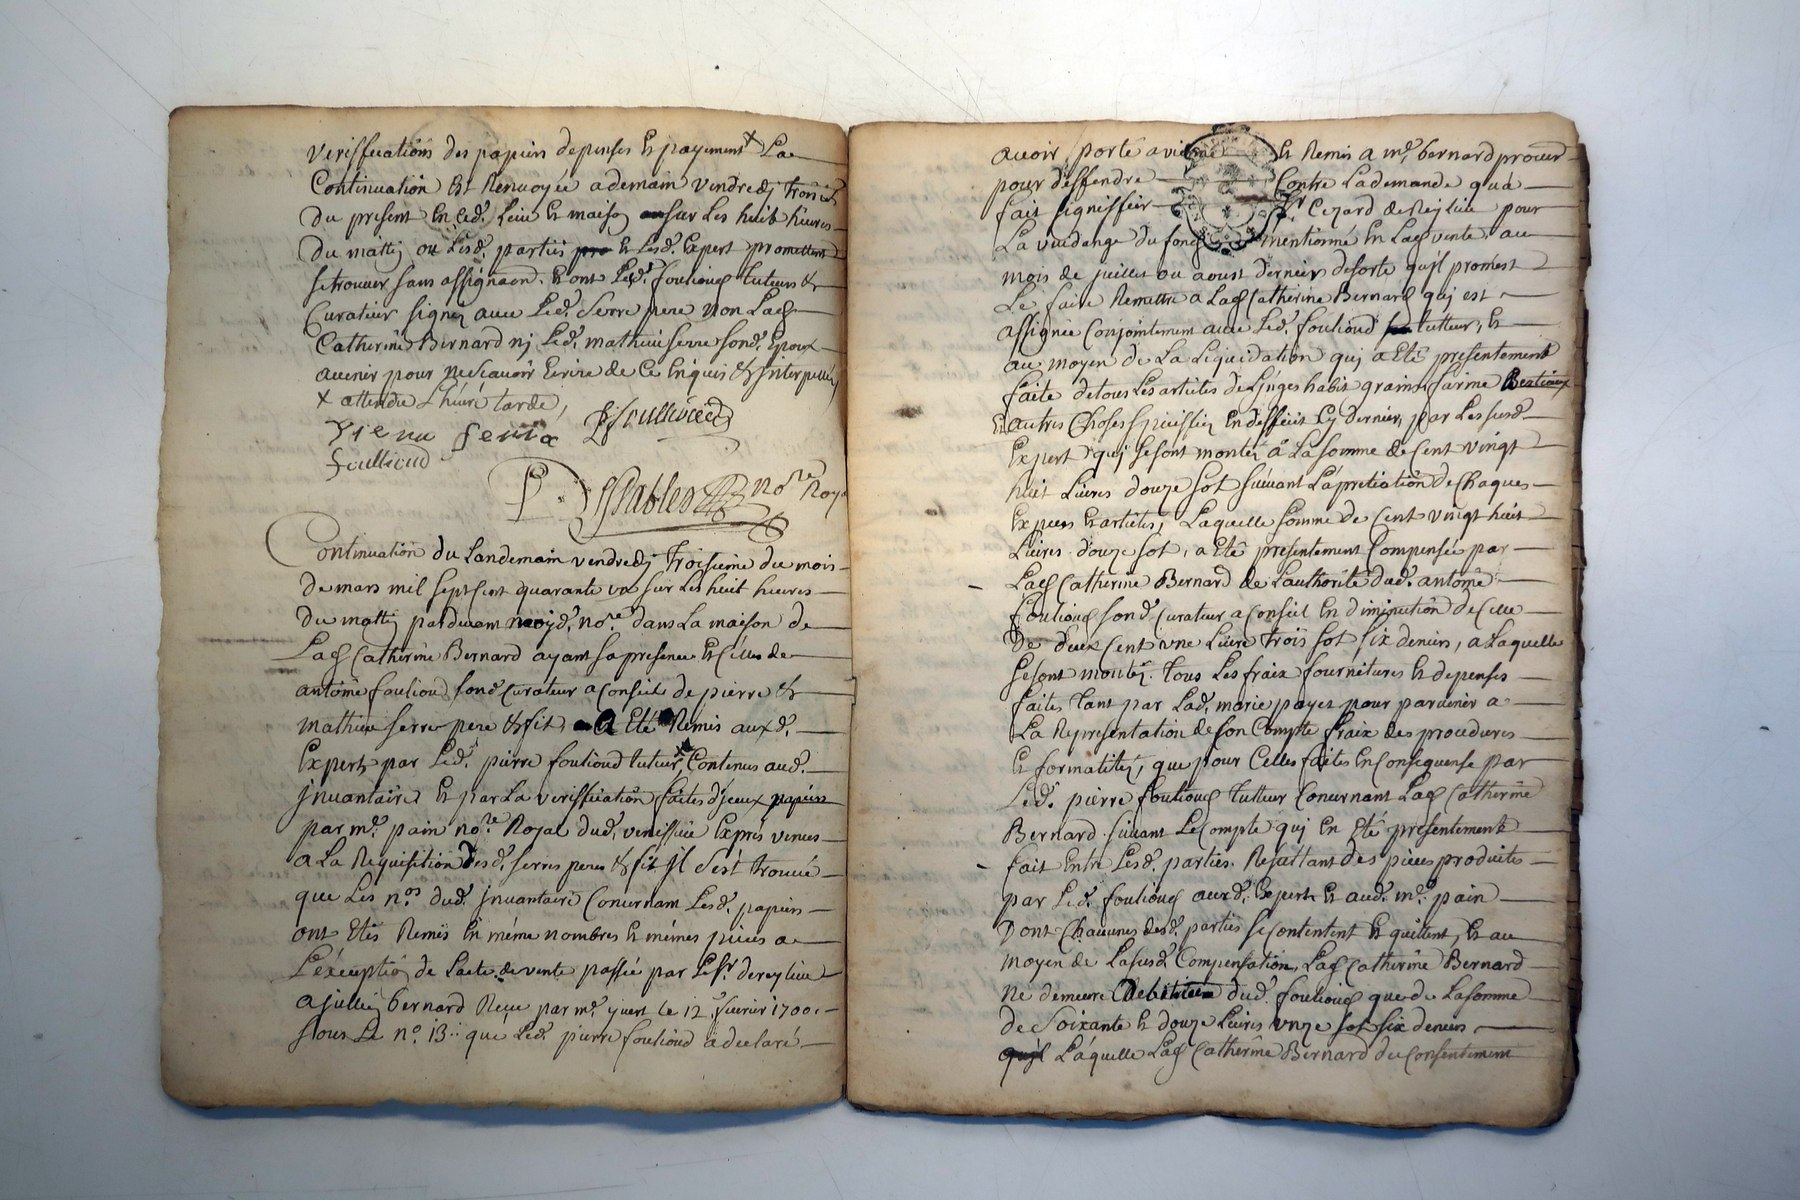 veriffications des papiers depenses et payement + La
Continuation est Renvoyée a demain vendredj troisie
du present en led. Lieu et maison sur Les huit heures
du mattin ou Lesd. parties et Lesd. Expert promettent
se trouver sans assignaon. et ont Lesd. fouliouds tuteurs &
Curateur signez avec Led. Serre pere non Lad.
Catherine Bernard nj Led. mathieu serre son d. Epoux
avenir pour ne scavoir Ecrire de Ce Enquis & Interpellés
+ attendu L'heure tarde,
Piere serre fouillioud
foullioud
P. Dessables nore Roya
Continuation du Landemain vendredj troisieme du mois
de mars mil sept cent quarante un sur Les huit heures
du mattin pardevant moyd. nore dans La maison de
Lad Catherine Bernard ayant sa presence et Celles de
antoine fouilioud son d. Curateur a Conseil de pierre &
mathieu serre pere & fils a Eté Remis auxd.
Experts par Led. pierre foulioud tuteur Contenus aud.
jnvantaire et par La veriffication faites d'jceux papiers
par me. pain nore Royal dud. venissieu Exprés venus
a La Requisition desd. serres peres & fils jl s'est trouvé
que Les nos. dud. jnvantaire Concernant Lesd. papiers
ont Etés Remis en même nombres et mêmes pieces a
L'éxception de Lacte de vente passée par Le Sr. de
a jullien bernard Reçu par me. yvert le 12. fevrier 1700.
sous Le no. 13 : que Led. pierre foulioud a declaré
avoir porté a vienne et Remis a me. bernard procur
pour deffendre Contre La demande qu'a
fait signiffier Sr Cezard de pour
La vuidange du fond mentionné en Lad vente, au
mois de juillet ou aoust dernier de sorte qu'jl promest
Le faire Remettre a Lad Catherine Bernard quj est
assignée Conjointement avec Led. foulioud tutteur, et
au moyen de La Liquidation quj a Eté presentement
faite de tous Les articles de Linges habis grains farine Bestiaux
et autres Choses par Les susd.
Expert quj se sont montés à La somme de Cent vingt
huit Livres douze sol suivant L'apretiation de Chaques
Especes et articles, Laquelle somme de Cent vingt huit
Livres douze sol, a Eté presentement Compensée par
Lad Catherine Bernard de Lauthorité dud. antoine
foulioud son d. Curateur a Conseil en diminution de Celle
De deux Cent une Livre trois sol six deniers, a Laquelle
se sont montés tous Les fraix fournitures et depenses
faites tant par Lad. marie payet pour parvenir a
La Representation de son Compte fraix des procedures
et formalités, que pour Celles faites en Consequense par
Led. pierre fouliould tutteur Concernant Lad Catherine
Bernard suivant Le Compte quj en Eté presentement
fait entre Lesd. parties Resultant des pieces produites
par Led. fouliould auxd. Experts et aud. me. pain
Dont Chacunes desd. parties se Contentent et quittent, et au
moyen de La susd. Compensation, Lad Catherine Bernard
ne demeure debitrice dud. fouliould que de La somme
de Soixante et douze Livres unze sol six deniers
L'aquelle Lad Catherine Bernard du Consentement